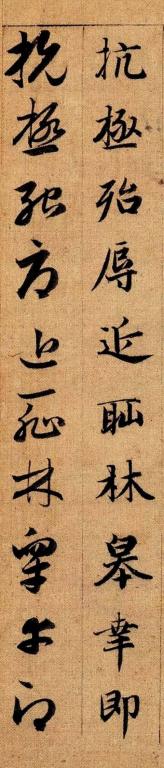 抗極殆辱近恥林皋幸即
抗極殆辱近恥林皋幸即